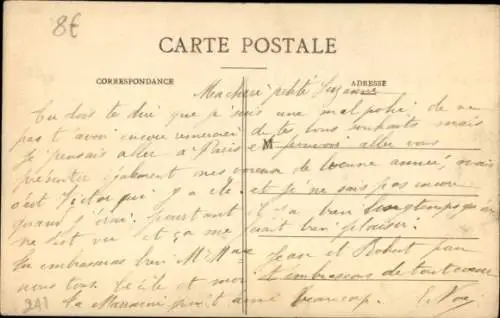 8€
CARTE POSTALE
CORRESPONDANCE
ADRESSE
Ma chère petite Suzanne
Tu dois te dire que je suis une mal polie de ne
pas t'avoir encore remercier de tes bons souhaits mais
je pensais aller à Paris et pouvoir aller vous
M
présenter également mes voeux de bonne année, mais
c'est qui a été et je ne sais pas encore
quand j'irai pourtant il y a bien longtemps qu'on
ne s'est vu et ça me ferait bien plaisir.
Tu embrasseras bien Mr Mme Jean et Robert pour
nous tous Cécile et moi t'embrassons de tout coeur
ta Marraine qui t'aime beaucoup.
241